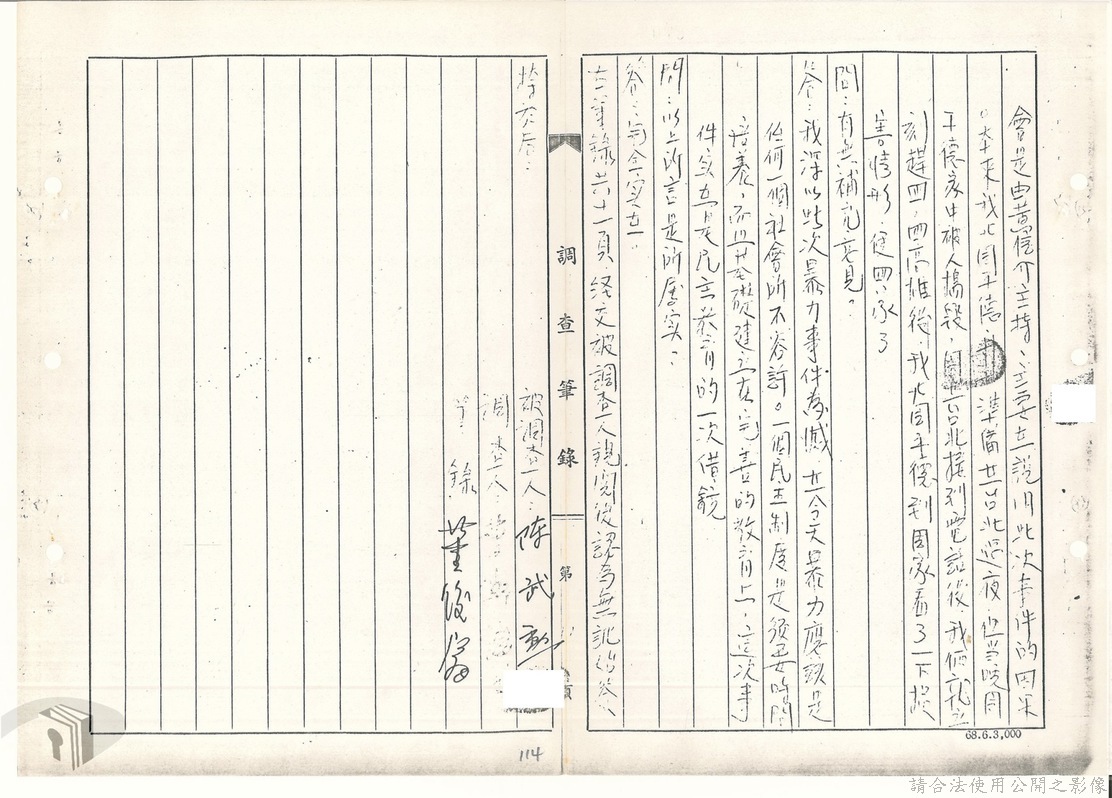 會是由黃信介主持，主要在說明此次事件的因果
。本來我北周平德
準備在台北過夜，但當晚周
平德家中被人搗毀，周在台北接到電話後，我倆就立
刻趕回，回高雄後，我北周平德到周家看了一下損
害情形，便回家了
問：有無補充意見。
答：我深以此次暴力事件為憾，在今天暴力應該是
任何一個社會所不容許。一個民主制度是須要時間
培養，而且基礎建立在完善的教育上，這次事
件实在是民主教育的一次借鏡
問：以上所言是所屬实。
答：完全实在。
右筆錄共十一頁，經交被調查人親閱後認為無訛始簽
捺於后：
被調查人：陳武勳
調查人：
筆錄
調查筆錄
第
頁
68.6.3,000
114
請合法使用公開之影像